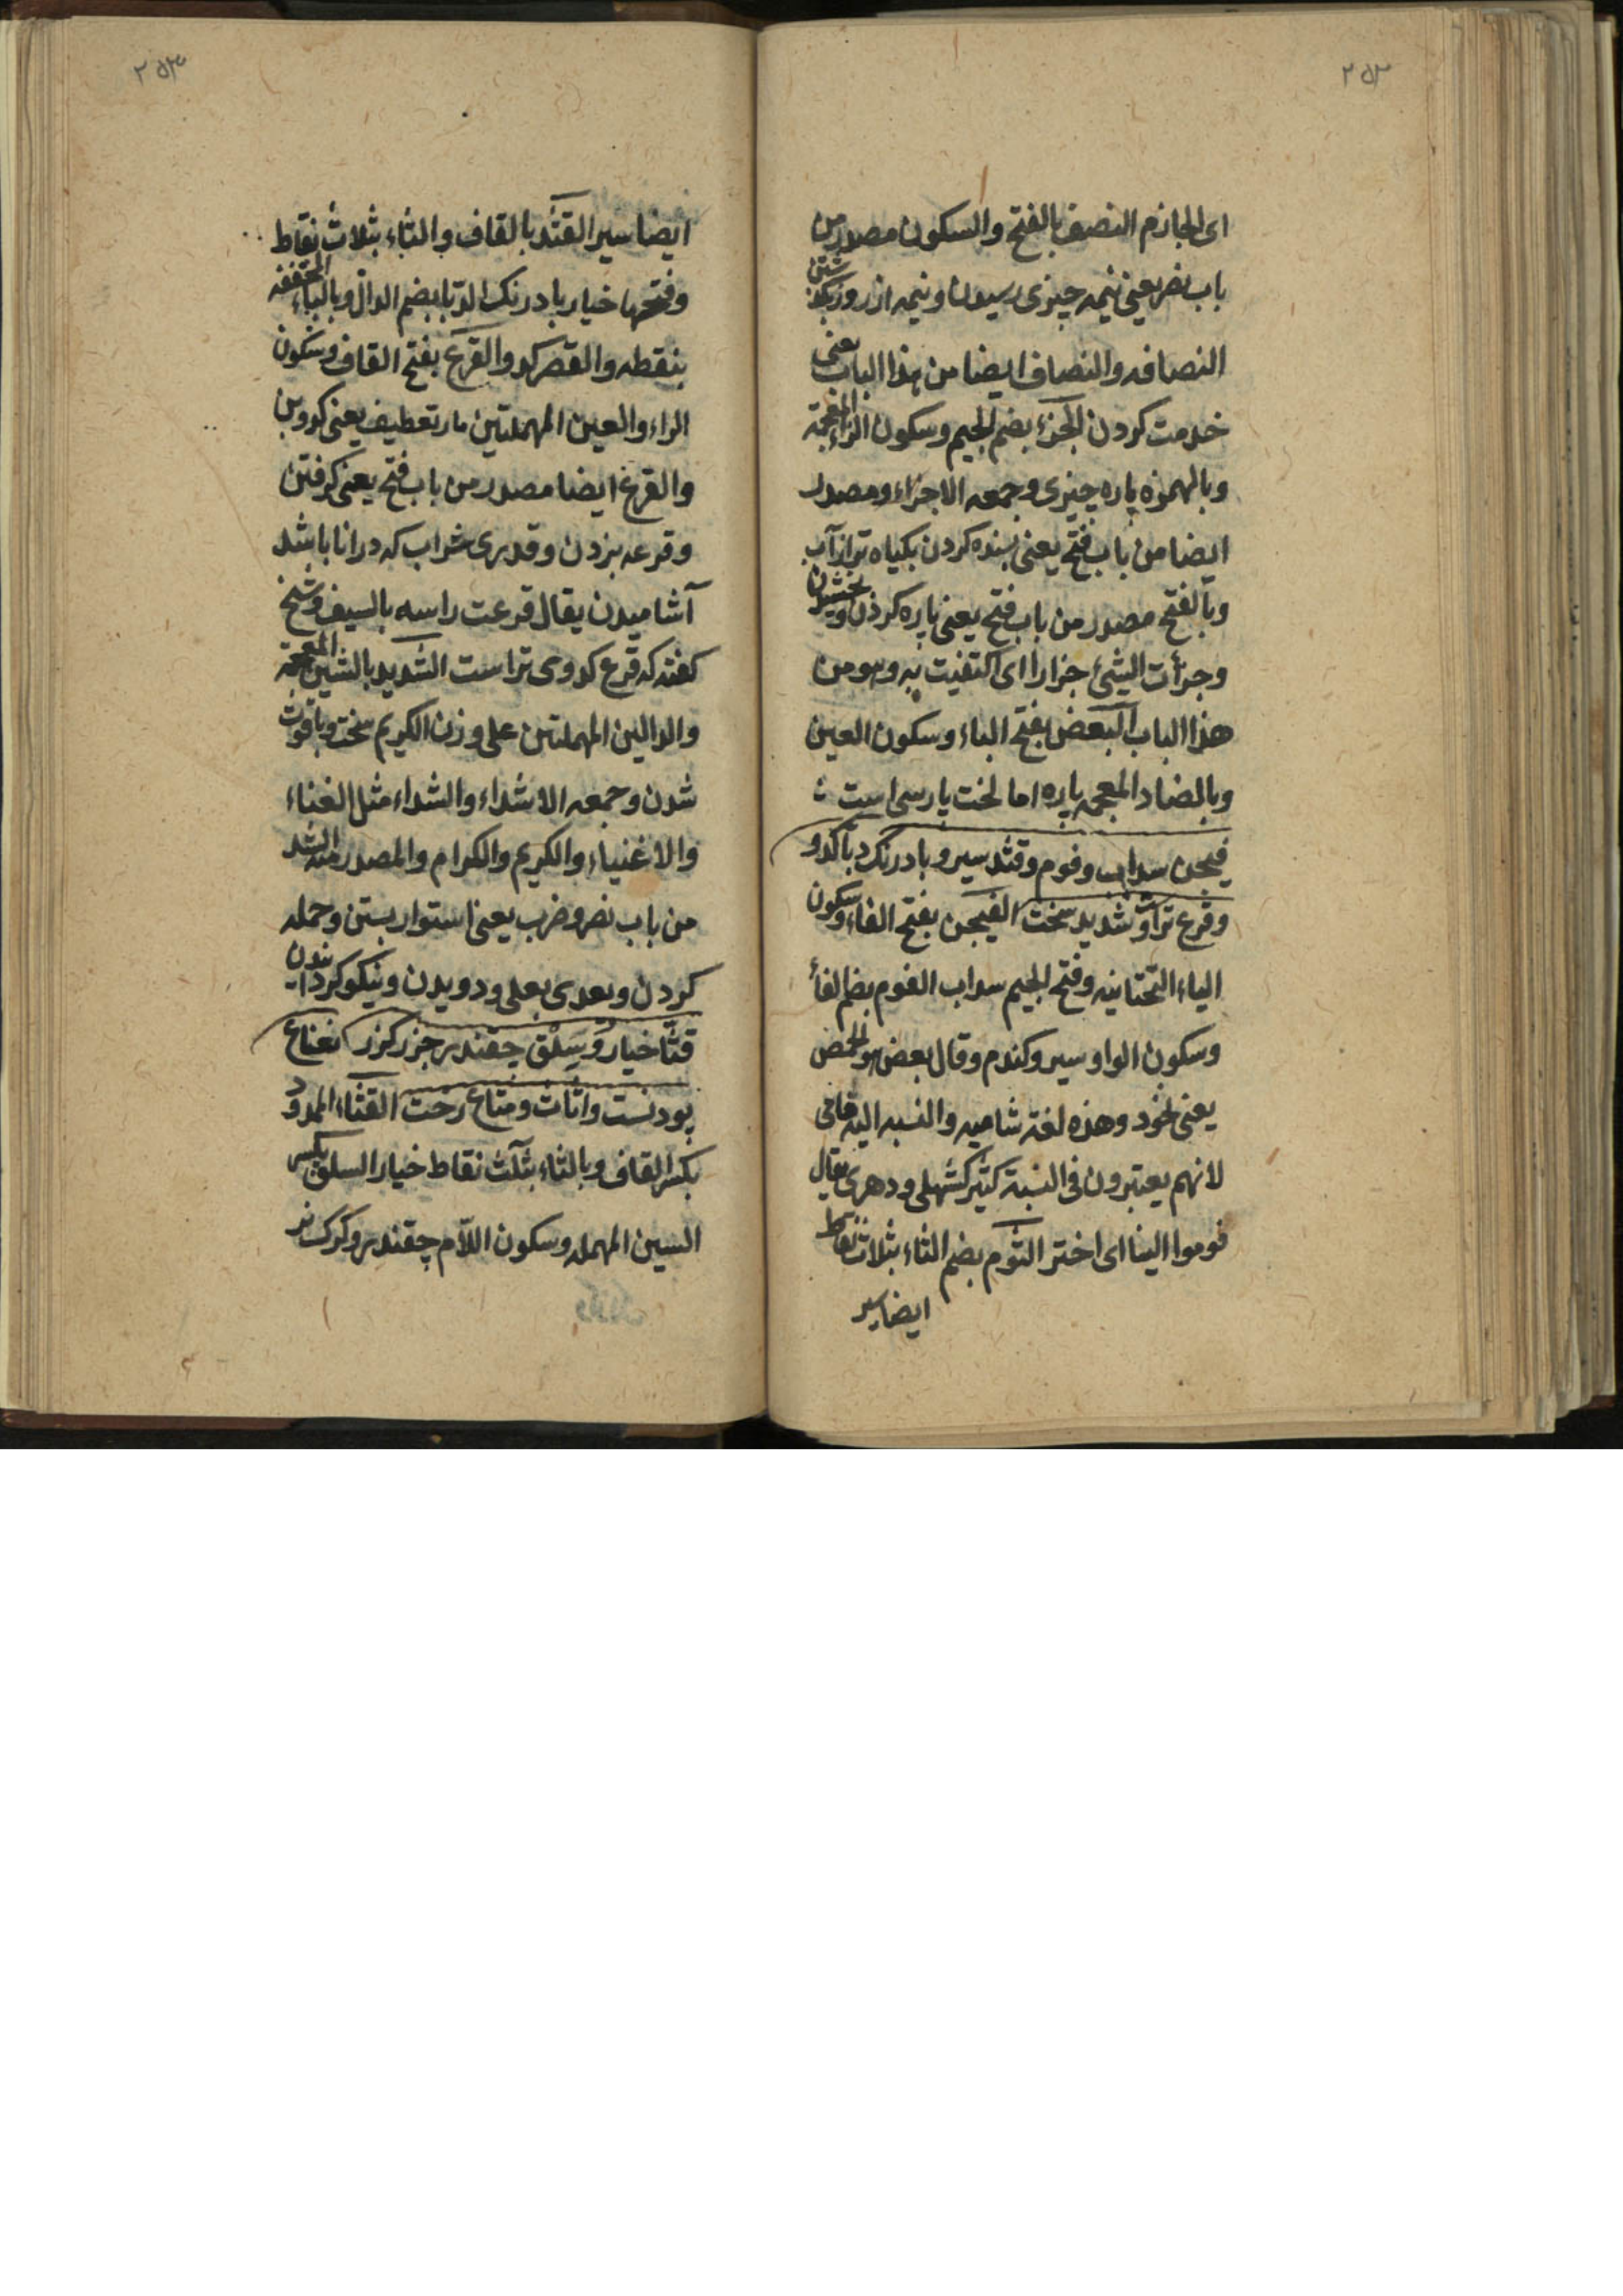 ٢٥٢
ای الجازم النصف بالفتح والسکون مصدر من
باب نصر یعنی نیمه چیزی رسیدن و نیمه از روز بکذ شتن
النصافه والنصاف ایضا من هذا الباب یعنی
خدمت کردن الجزء بضم الجیم وسکون الزاء المعجمة
وبالهمزه پاره چیزی وجمعه الاجزاء ومصدر
ایضا من باب فتح یعنی بسنده کردن بکیاه تر از آب
وبالفتح مصدر من باب فتح یعنی پاره کردن و بخشیدن
وجزأت الشیئ جزاراای اکتفیت به وهو من
هذا الباب البعض بفتح الباء وسکون العین
وبالضاد المعجمه پاره اما لخت پارسی است
فیجن سداب وفوم وقثد سیر و بادرنک دبا کدو
وقرع تراوت شدید سخت الفیجن بفتح الفاء وسکون
الیاء التحتانیه وفتح الجیم سداب الفوم بضم الفاء
وسکون الواو سیر وکندم وقال بعض هو الحمص
یعنی نخود وهذه لغة شامیه والنسبه الیه فامی
لانهم یعتبرون فی النسبة کثیر کشهلی ودهری یقال
فوموا الینا ای اختر الثوم بضم الثاء بثلاث نقاط
ایضا سیر
٢٥٣
ایضا سیر القثد بالقاف والثاء بثلاث نقاط
وفتحها خیار بادرنک الدبا بضم الدال وبالباء المخففه
بنقطه والقصر کدو والقرع بفتح القاف وسکون
الراء والعین المهملتین مار تعطیف یعنی کدو وبن
والقرع ایضا مصدر من باب فتح یعنی کرفتن
وقرعه بزدن وقدری شراب که در انا باشد
آشامیدن یقال قرعت راسه بالسیف وشیخ
کفته که قرع کدوی تراست الشدید بالشین المعجمة
والدالین المهملتین علی وزن الکریم سخت وباقوت
شدن وجمعه الاشداء والشداء مثل الغناء
والاغنیاء والکریم والکرام والمصدر منه الشد
من باب نصر وضرب یعنی استوار بستن وحمله
کردن ویعدی بعلی ودویدن ونیکو کردانیدن
قثا خیار وسلق چقندر جزر کزر نعناع
پودنست واثاث ومتاع رخت القثاء الممدود
بکسر القاف وبالثاء بثلث نقاط خیار السلق بکسر
السین المهمله وسکون اللام چقندر وکرک نر